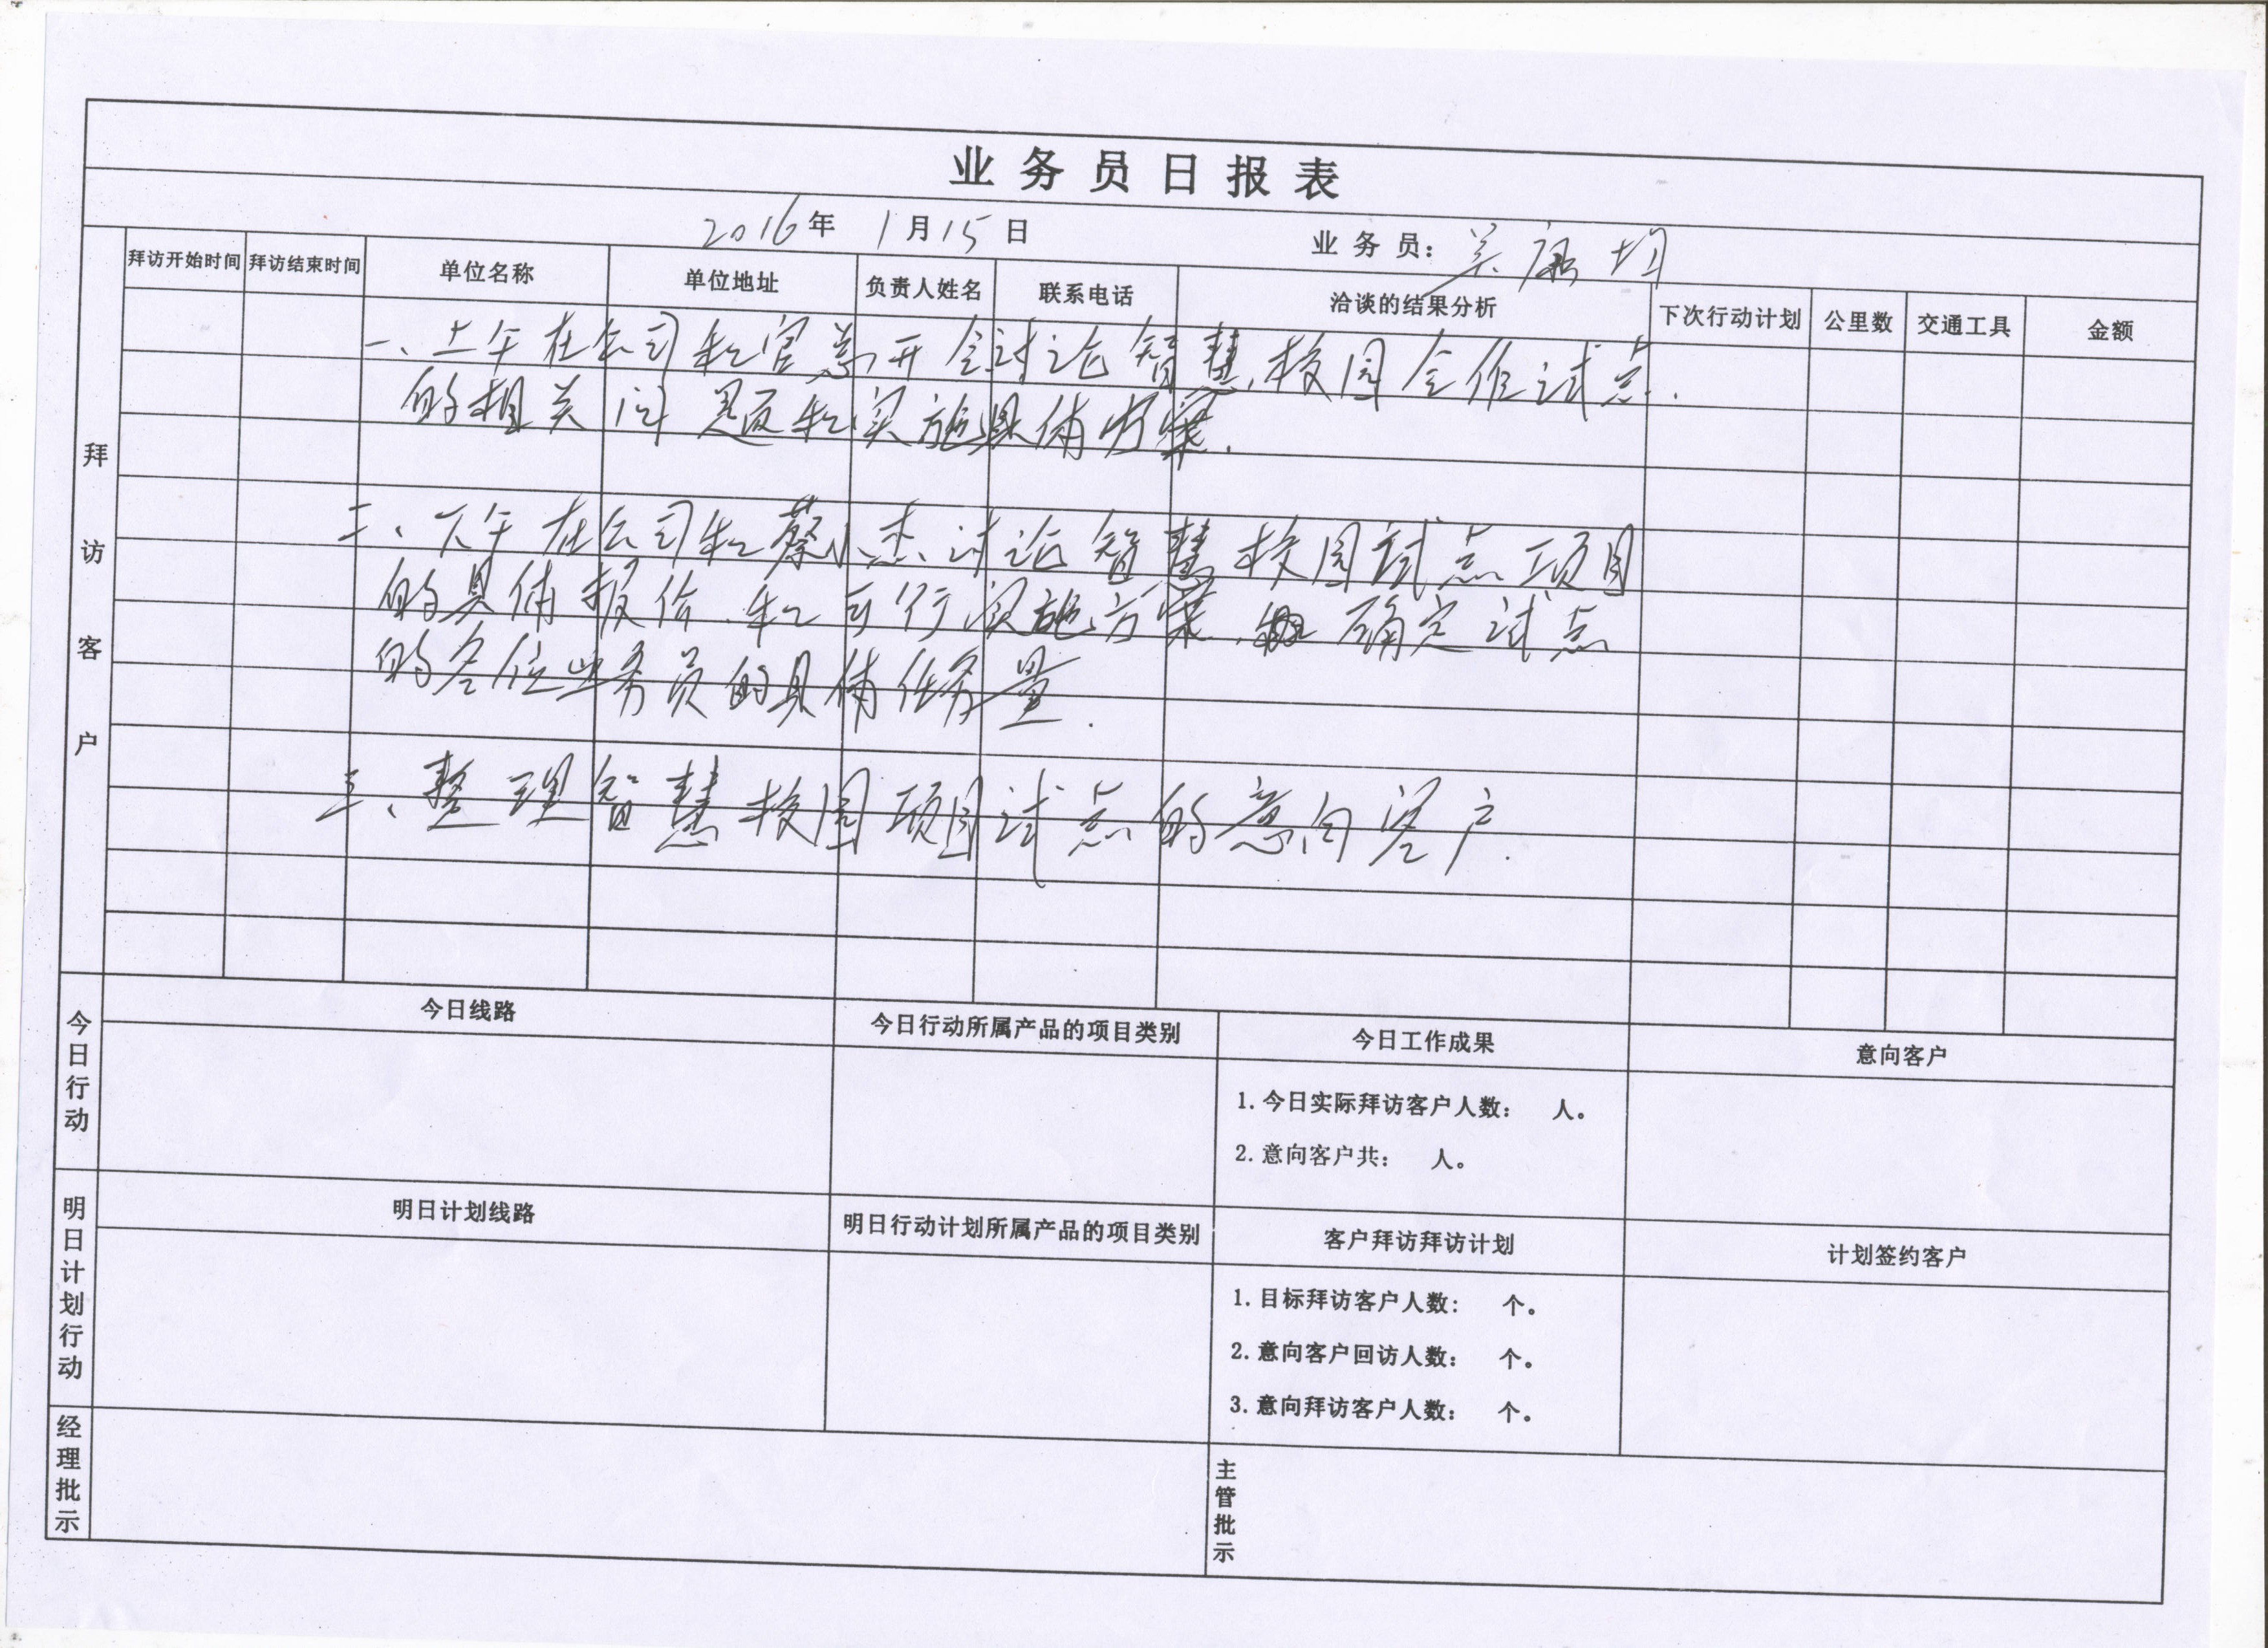 业务员日报表
2016年 1月15日 业务员：吴
拜访客户
拜访开始时间 拜访结束时间 单位名称 单位地址 负责人姓名 联系电话 洽谈的结果分析 下次行动计划 公里数 交通工具 金额
一、上午在公司和官总开会讨论智慧校园合作试点.
的相关问题和实施具体方案.
二、下午在公司和蔡小杰讨论智慧校园试点项目
的具体报价.和可行实施方案. 确定试点
的各位业务员的具体任务量.
三、整理智慧校园项目试点的意向客户.
今日行动
今日线路 今日行动所属产品的项目类别 今日工作成果 意向客户
1.今日实际拜访客户人数： 人。
2.意向客户共： 人。
明日计划行动
明日计划线路 明日行动计划所属产品的项目类别 客户拜访拜访计划 计划签约客户
1.目标拜访客户人数： 个。
2.意向客户回访人数： 个。
3.意向拜访客户人数： 个。
经理批示 主管批示